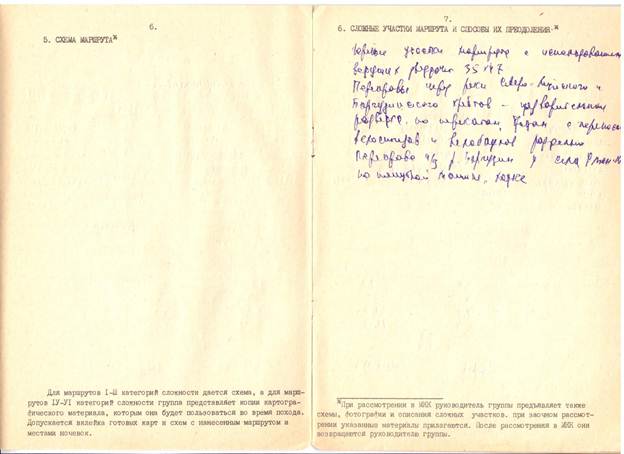 6.
5. СХЕМА МАРШРУТА*
Для маршрутов I-Ш категорий сложности дается схема, а для марш-
рутов IУ-УI категорий сложности группа представляет копии картогра-
фического материала, которым она будет пользоваться во время похода.
Допускается вклейка готовых карт и схем с нанесенным маршрутом и
местами ночевок.
7.
6. СЛОЖНЫЕ УЧАСТКИ МАРШРУТА И СПОСОБЫ ИХ ПРЕОДОЛЕНИЯ*
участки маршрута с
Переправы через реки Северо-Муйского и
Баргузинского хребтов -
разведка, по перекатам,
велосипедов и раздельно
Переправа ч/з р. Баргузин у села
по
*При рассмотрении в МКК руководитель группы предъявляет также
схемы, фотографии и описания сложных участков. при заочном рассмот-
рении указанные материалы прилагаются. После рассмотрения в МКК они
возвращаются руководителю группы.